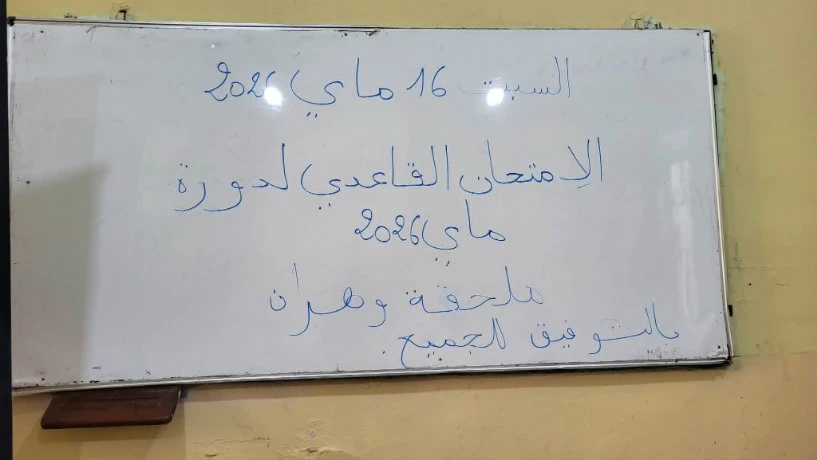 السبت 16 ماي 2026
الإمتحان القاعدي لدورة
ماي 2026
ملحقة وهران
بالتوفيق للجميع.